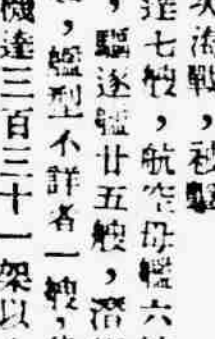 次海戰，被擊
達七艘，航空母艦六
，驅逐艦廿五艘，潛
，艦型不詳者一艘，
機達三百三十一架以